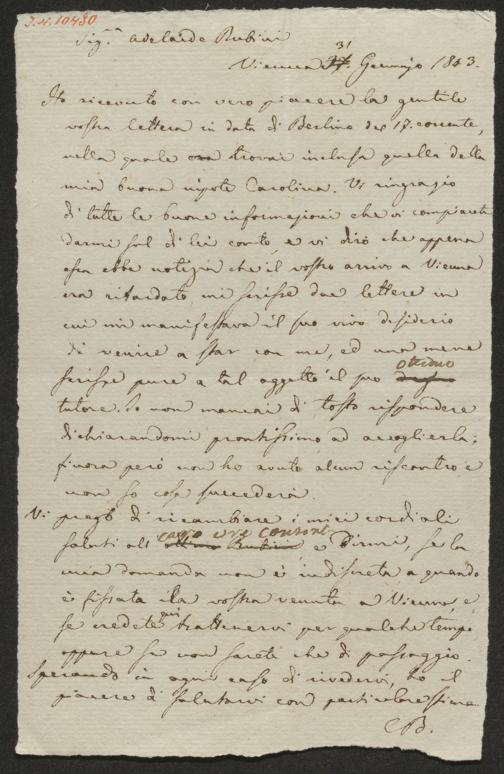 I.N. 10480
Sig.ra Adelaide Rubini
Vienna 31 Gennajo 1843.
Ho ricevuto con vero piacere la gentile
vostra lettera in data di Berlino del 17. corrente,
nella quale trovai inclusa quella della
mia buona nipote Carolina. Vi ringrazio
di tutte le buone informazioni che vi compiacete
darmi sul di lei conto, e vi dirò che appena
essa ebbe notizia che il vostro arrivo a Vienna
era ritardato, mi scrisse due lettere in
cui mi manifestava il suo vivo desiderio
di venire a star con me, ed una mene
scrisse pure a tal oggetto il suo ottimo
tutore. Io non mancai di tosto rispondere
dichiarandomi prontissimo ad accoglierla;
finora però non ho avuto alcun riscontro e
non so cosa succederà.
Vi prego di ricambiare i miei cordiali
saluti all caro vre consorte e dirmi, se la
mia domanda non è indiscreta, a quando
è fissata la vostra venuta a Vienna, e
se credete qui trattenervi per qualche tempo
oppure se non sarete che di passaggio.
Sperando in ogni caso di rivedervi, ho il
piacere di salutarvi con particolare stima
B.